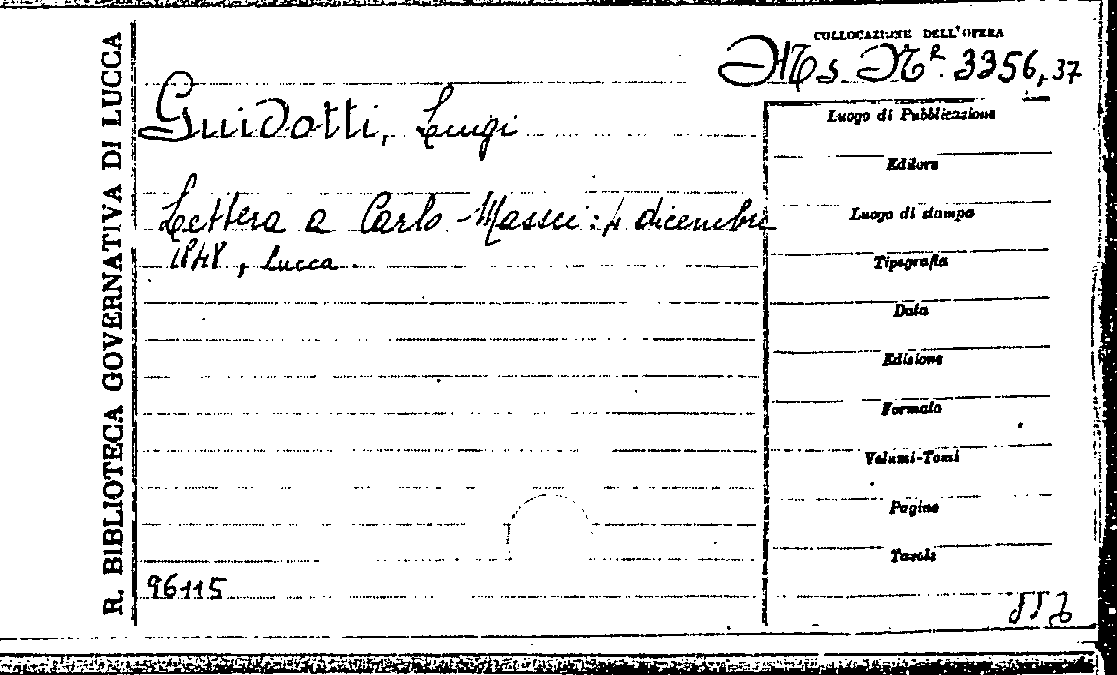 R. BIBLIOTECA GOVERNATIVA DI LUCCA
COLLOCAZIONE DELL'OPERA
Ms. Nr. 3356,37
Guidotti, Luigi
Lettera a Carlo Massei: 4 dicembre
1848, Lucca.
Luogo di Pubblicazione
Editore
Luogo di stampa
Tipografia
Data
Edizione
Formato
Volumi-Tomi
Pagine
Tavole
96115